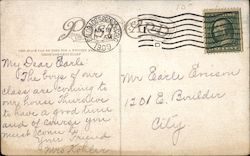 1909
My Dear Earle
The boys of our
class are coming to
our house Thurs Eve
to have a good time
and of course you
must come
Your Friend
Mrs Kohler
Mr Earle Enison
1201 E. Boulder
City